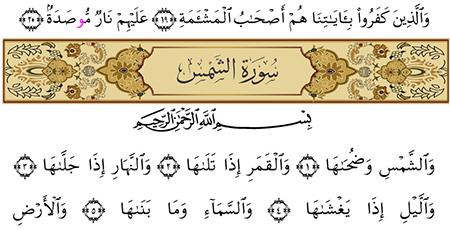 وَٱلَّذِينَ كَفَرُوا۟ بِـَٔايَـٰتِنَا هُمْ أَصْحَـٰبُ ٱلْمَشْـَٔمَةِ ﴿١٩﴾ عَلَيْهِمْ نَارٌ مُّوصَدَةٌۢ ﴿٢٠﴾
سُورَةُ الشَّمْسِ
بِسْمِ اللَّهِ الرَّحْمَٰنِ الرَّحِيمِ
وَٱلشَّمْسِ وَضُحَىٰهَا ﴿١﴾ وَٱلْقَمَرِ إِذَا تَلَىٰهَا ﴿٢﴾ وَٱلنَّهَارِ إِذَا جَلَّىٰهَا ﴿٣﴾
وَٱلَّيْلِ إِذَا يَغْشَىٰهَا ﴿٤﴾ وَٱلسَّمَآءِ وَمَا بَنَىٰهَا ﴿٥﴾ وَٱلْأَرْضِ